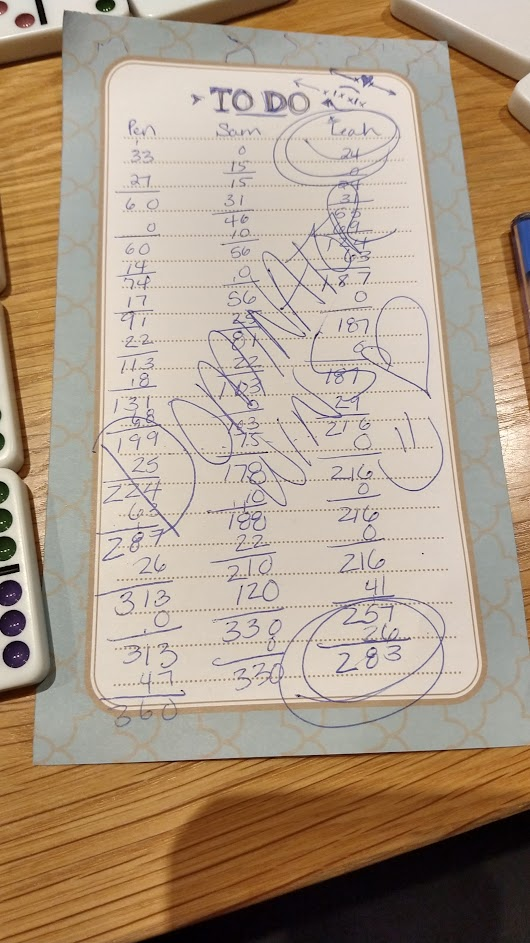 TO DO
Pen Sam Leah
33 0 24
27 15 0
60 15 24
0 31 31
60 46
14 10
74 56 63
17 0 187
91 56 0
22 25 187
113 81 0
18 22 187
131 103 29
68 0 216
199 103 0
25 75 216
224 178 0
63 10 216
287 188 0
26 22 216
313 210 41
0 120 257
313 330 26
47 0 283
360 330